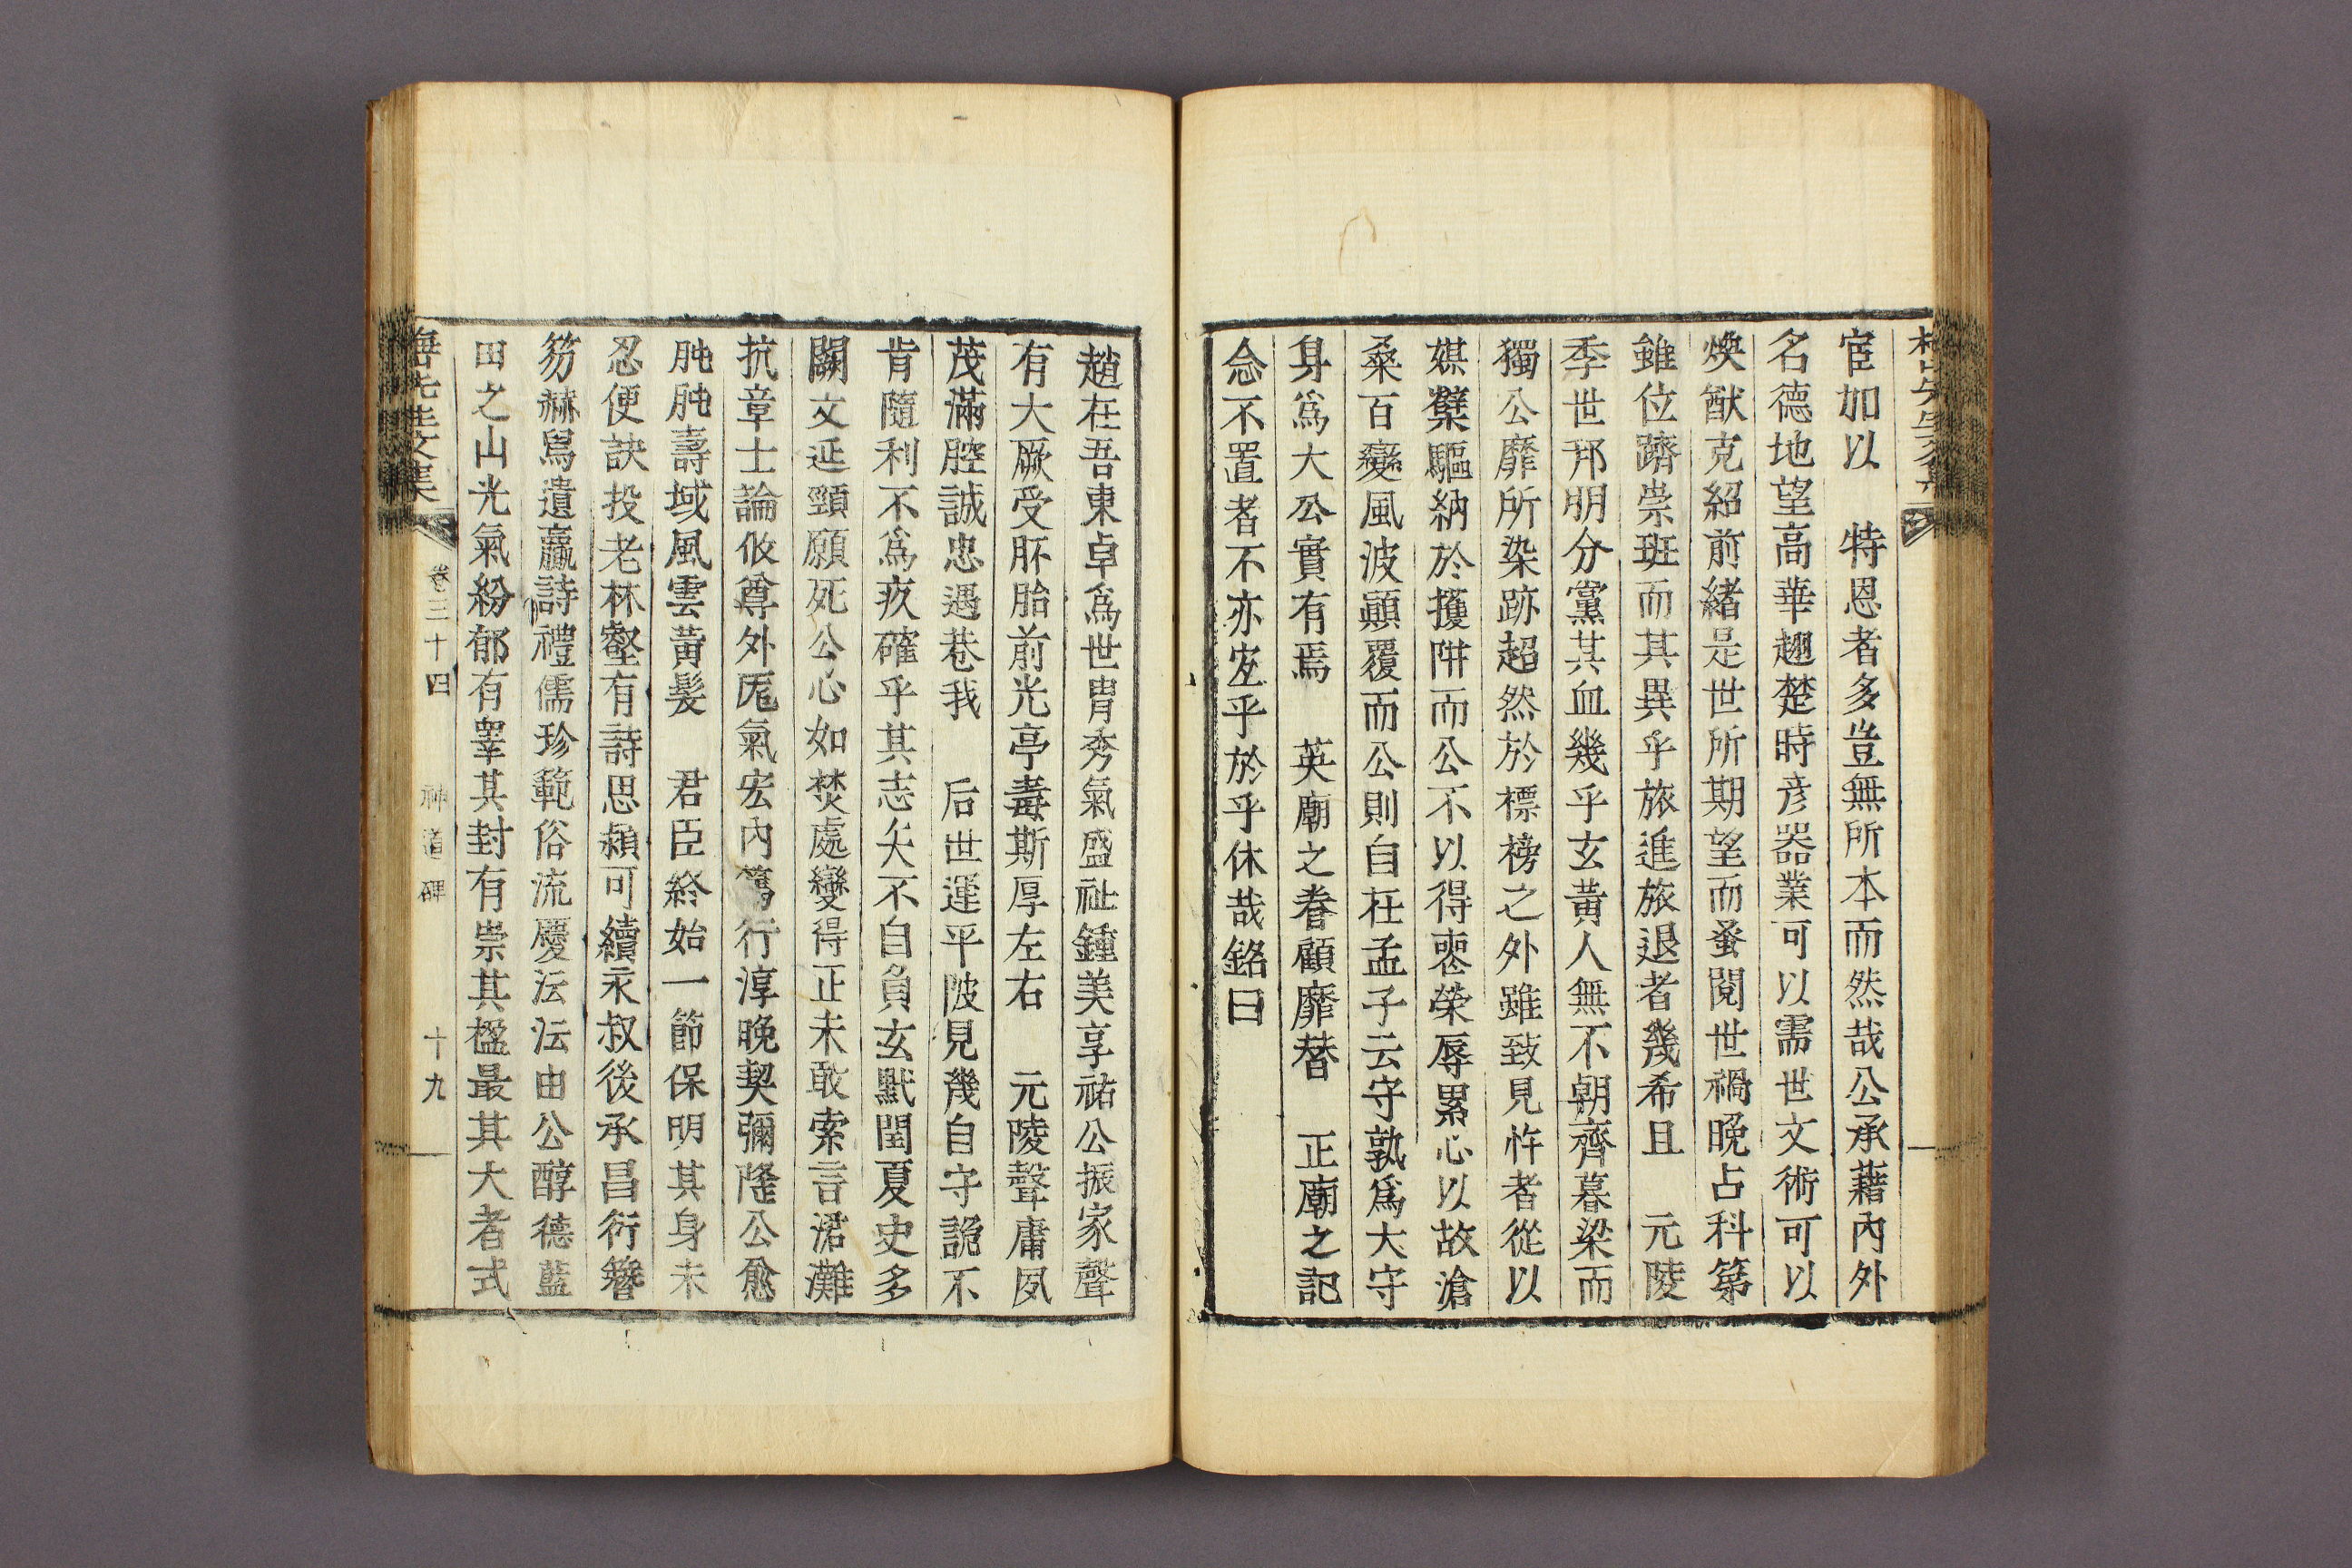 宦加以　特恩者多豈無所本而然哉公承藉內外
名德地望高華趣楚時彥器業可以需世文術可以
煥猷克紹前緒是世所期望而蚤閱世禍晩占科第
雖位躋崇班而其異乎旅進旅退者幾希且　元陵
季世邦朋分黨其血幾乎玄黃人無不朝齊暮梁而
獨公靡所染跡超然於標榜之外雖致見忤者從以
媒糱驅納於擭阱而公不以得喪榮辱累心以故滄
桑百變風波顚覆而公則自在孟子云守孰爲大守
身爲大公實有焉　英廟之眷顧靡替　正廟之記
念不置者不亦宜乎於乎休哉銘曰
趙在吾東卓爲世冑秀氣盛祉鍾美享祐公振家聲
有大厥受胚胎前光亭毒斯厚左右　元陵聲庸夙
茂滿腔誠忠遇巷我　后世運平陂見幾自守詭不
肯隨利不爲疚確乎其志矢不自負玄默閏夏史多
闕文延頸願死公心如焚處變得正未敢索言涒灘
抗章士論攸尊外厖氣宏內篤行淳晩契彌隆公愈
肫肫壽域風雲黃髮　君臣終始一節保明其身未
忍便訣投老林壑有詩思潁可續永叔後承昌衍簪
笏赫舃遺贏詩禮儒珍範俗流慶沄沄由公醇德藍
田之山光氣紛郁有睪其封有崇其楹最其大者式
卷三十四　神道碑　十九